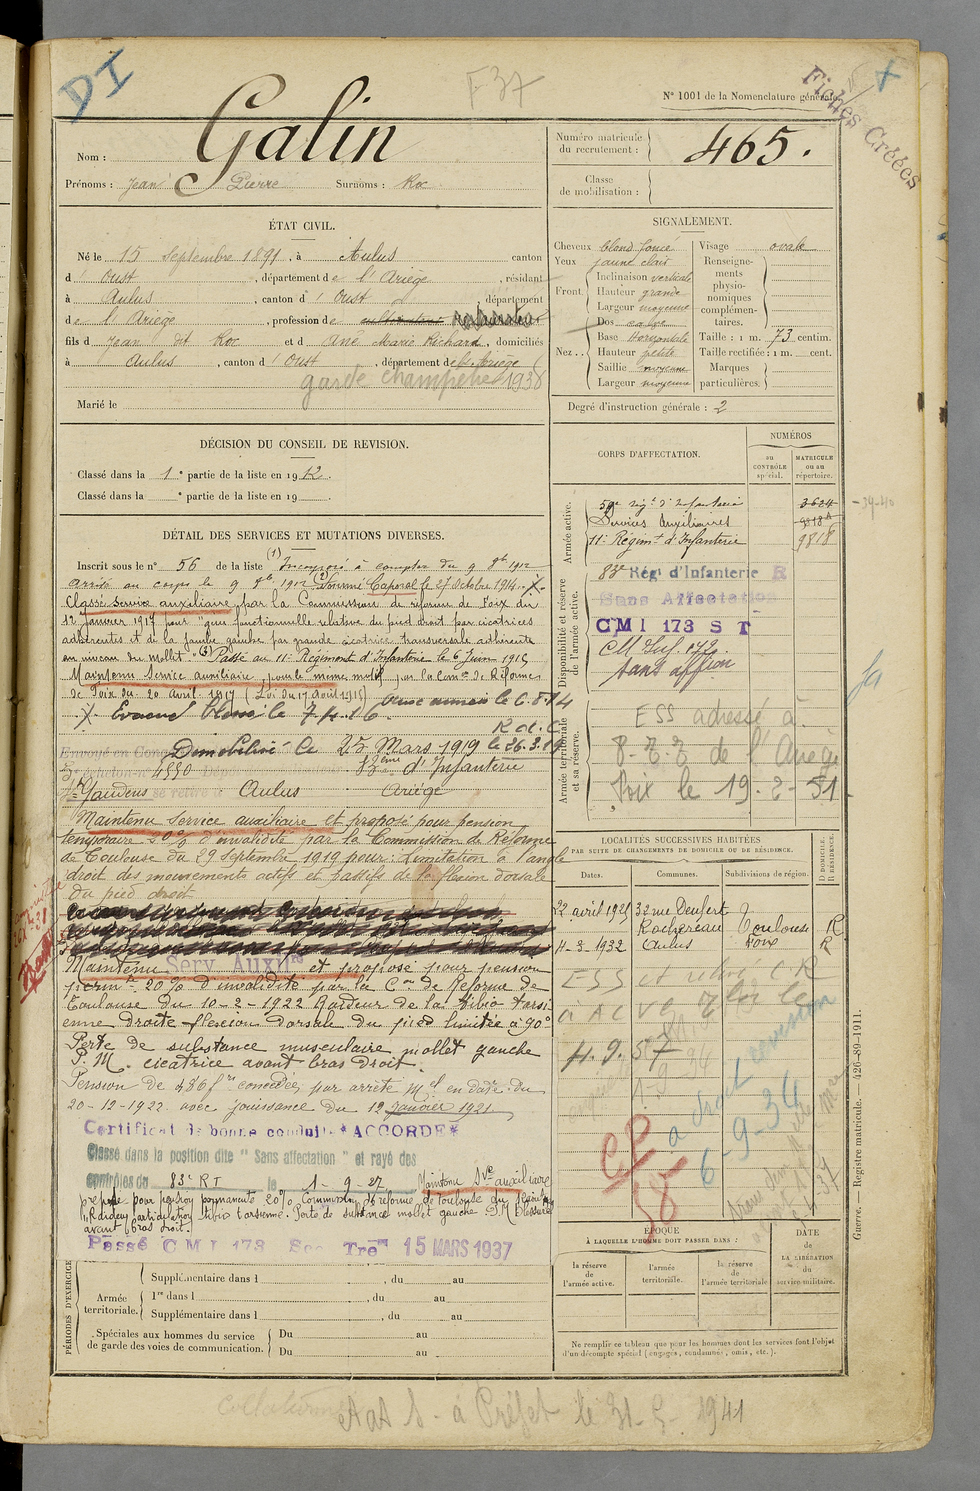 DI
F37
N° 1001 de la Nomenclature générale.
Fiches Créées
Nom : Galin
Prénoms : Jean Pierre Surnoms : Roc
Numéro matricule du recrutement : 465.
Classe de mobilisation :
ÉTAT CIVIL.
Né le 15 Septembre 1891, à Aulus canton
d' Oust, département de l'Ariège, résidant
à Aulus, canton d' Oust, département
de l'Ariège, profession de cultivateur
fils d Jean dit Roc et d Ane Marie Richard, domiciliés
à Aulus, canton d' Oust, département de l'Ariège
garde champêtre 1938
Marié le
SIGNALEMENT.
Cheveux blond foncé
Yeux jaune clair
Front. Inclinaison verticale
Hauteur grande
Largeur moyenne
Nez.. Dos cave
Base Horizontale
Hauteur petite
Saillie moyenne
Largeur moyenne
Visage ovale
Renseignements physionomiques complémentaires.
Taille : 1 m. 73 centim.
Taille rectifiée : 1 m. cent.
Marques particulières
Degré d'instruction générale : 2
DÉCISION DU CONSEIL DE REVISION.
Classé dans la 1e partie de la liste en 1912.
Classé dans la e partie de la liste en 19 .
CORPS D'AFFECTATION.
NUMÉROS
au CONTRÔLE spécial.
MATRICULE ou au répertoire.
Armée active.
59e Régt d'Infanterie 3624
Services Auxiliaires 9818 A
11e Régimt d'Infanterie 9818
Disponibilité et réserve de l'armée active.
83e Régt d'Infanterie R
Sans Affectation
CMI 173 S T
CM Inf. 172
Sans affion
Armée territoriale et sa réserve.
ESS adressé à
de l'Ariège
Foix le 19-2-51
DÉTAIL DES SERVICES ET MUTATIONS DIVERSES.
Inscrit sous le n° 56 de la liste (1) Incorporé à compter du 9 8bre 1912
arrivé au corps le 9 8bre 1912 (2) Nommé Caporal le 27 Octobre 1914.
Classé service auxiliaire par la Commission de réforme de Foix du
12 Janvier 1917 pour "gêne fonctionnelle relative du pied droit par cicatrices
adhérentes et de la jambe gauche par grande cicatrice transversale adhérente
au niveau du mollet". (3) Passé au 11e Régiment d'Infanterie le 6 Juin 1915
Maintenu Service auxiliaire pour le même motif par la Con de Réforme
de Foix du 20 avril 1917 (Loi du 17 août 1915)
Evacué blessé le
Démobilisé le 25 Mars 1919
échelon n° 4550 18ème d'Infanterie
St Gaudens se retire à Aulus Ariège
Maintenu Service auxiliaire et proposé pour pension
temporaire 20% d'invalidité par la Commission de Réforme
de Toulouse du 29 septembre 1919 pour : Limitation à l'angle
droit des mouvements actifs et passifs de la flexion dorsale
du pied droit
Maintenu Serv. Auxre et proposé pour pension
permte 20% d'invalidité par la Con de Réforme de
Toulouse du 10-2-1922 Raideur de la tibio tarsi
enne droite flexion dorsale du pied limitée à 90°
Perte de substance musculaire mollet gauche
P. M. cicatrice avant bras droit.
Pension de 486f concédée par arrêté Mel en date du
20-12-1922 avec jouissance du 12 Janvier 1921
Certificat de bonne conduite *ACCORDÉ*
Classé dans la position dite "Sans affectation" et rayé des
contrôles du 83e RI le 1-9-27
Maintenu Sce auxiliaire
proposé pour pension permanente 20% Commission de réforme de Toulouse du
Raideur articulation tibio tarsienne. Perte de substance mollet gauche P.M. blessure
avant bras droit.
Passé CMI 173 Sec Tre 15 MARS 1937
LOCALITÉS SUCCESSIVES HABITÉES
PAR SUITE DE CHANGEMENTS DE DOMICILE OU DE RÉSIDENCE.
Dates. Communes. Subdivisions de région. D. DOMICILE. R. RÉSIDENCE.
22 avril 1925 32 rue Denfert
Rochereau Toulouse R
4-3-1932 Aulus Foix R
4.9.57
6-9-34
CP
58
ÉPOQUE
À LAQUELLE L'HOMME DOIT PASSER DANS :
la réserve de l'armée active.
l'armée territoriale.
la réserve de l'armée territoriale
DATE de LA LIBÉRATION du service militaire.
PÉRIODES D'EXERCICE
Supplémentaire dans l , du au
Armée territoriale. 1re dans l , du au
Supplémentaire dans l , du au
Spéciales aux hommes du service de garde des voies de communication. Du au
Du au
Ne remplir ce tableau que pour les hommes dont les services font l'objet
d'un décompte spécial (engagés, condamnés, omis, etc.).
Guerre. Registre matricule. — 426-89-1911.
à Préfet le 31-5-1941